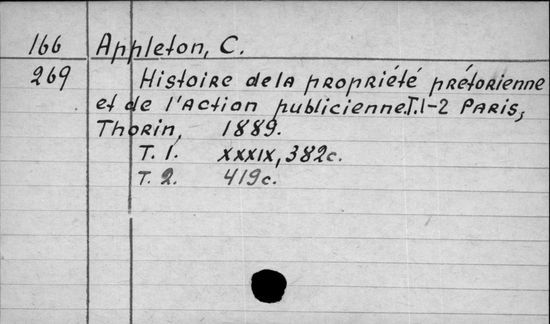 166 Appleton, C.
269 Histoire de la propriété prétorienne
et de l'Action publicienne. T.1-2 Paris,
Thorin, 1889.
T. 1. XXXIX, 382c.
T. 2. 419c.